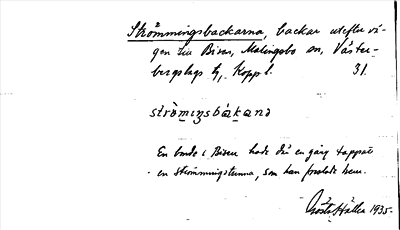 Strömmingsbackarna, backar utefter vä-
gen till Bisen, Malingsbo sn, Väster-
bergslags tg, Kopp l. 31.
strö̀mıŋsbákanə
En bonde i Bisen hade där en gång tappat
en strömmingstunna, som han forslade hem.
Gösta Häller 1935.